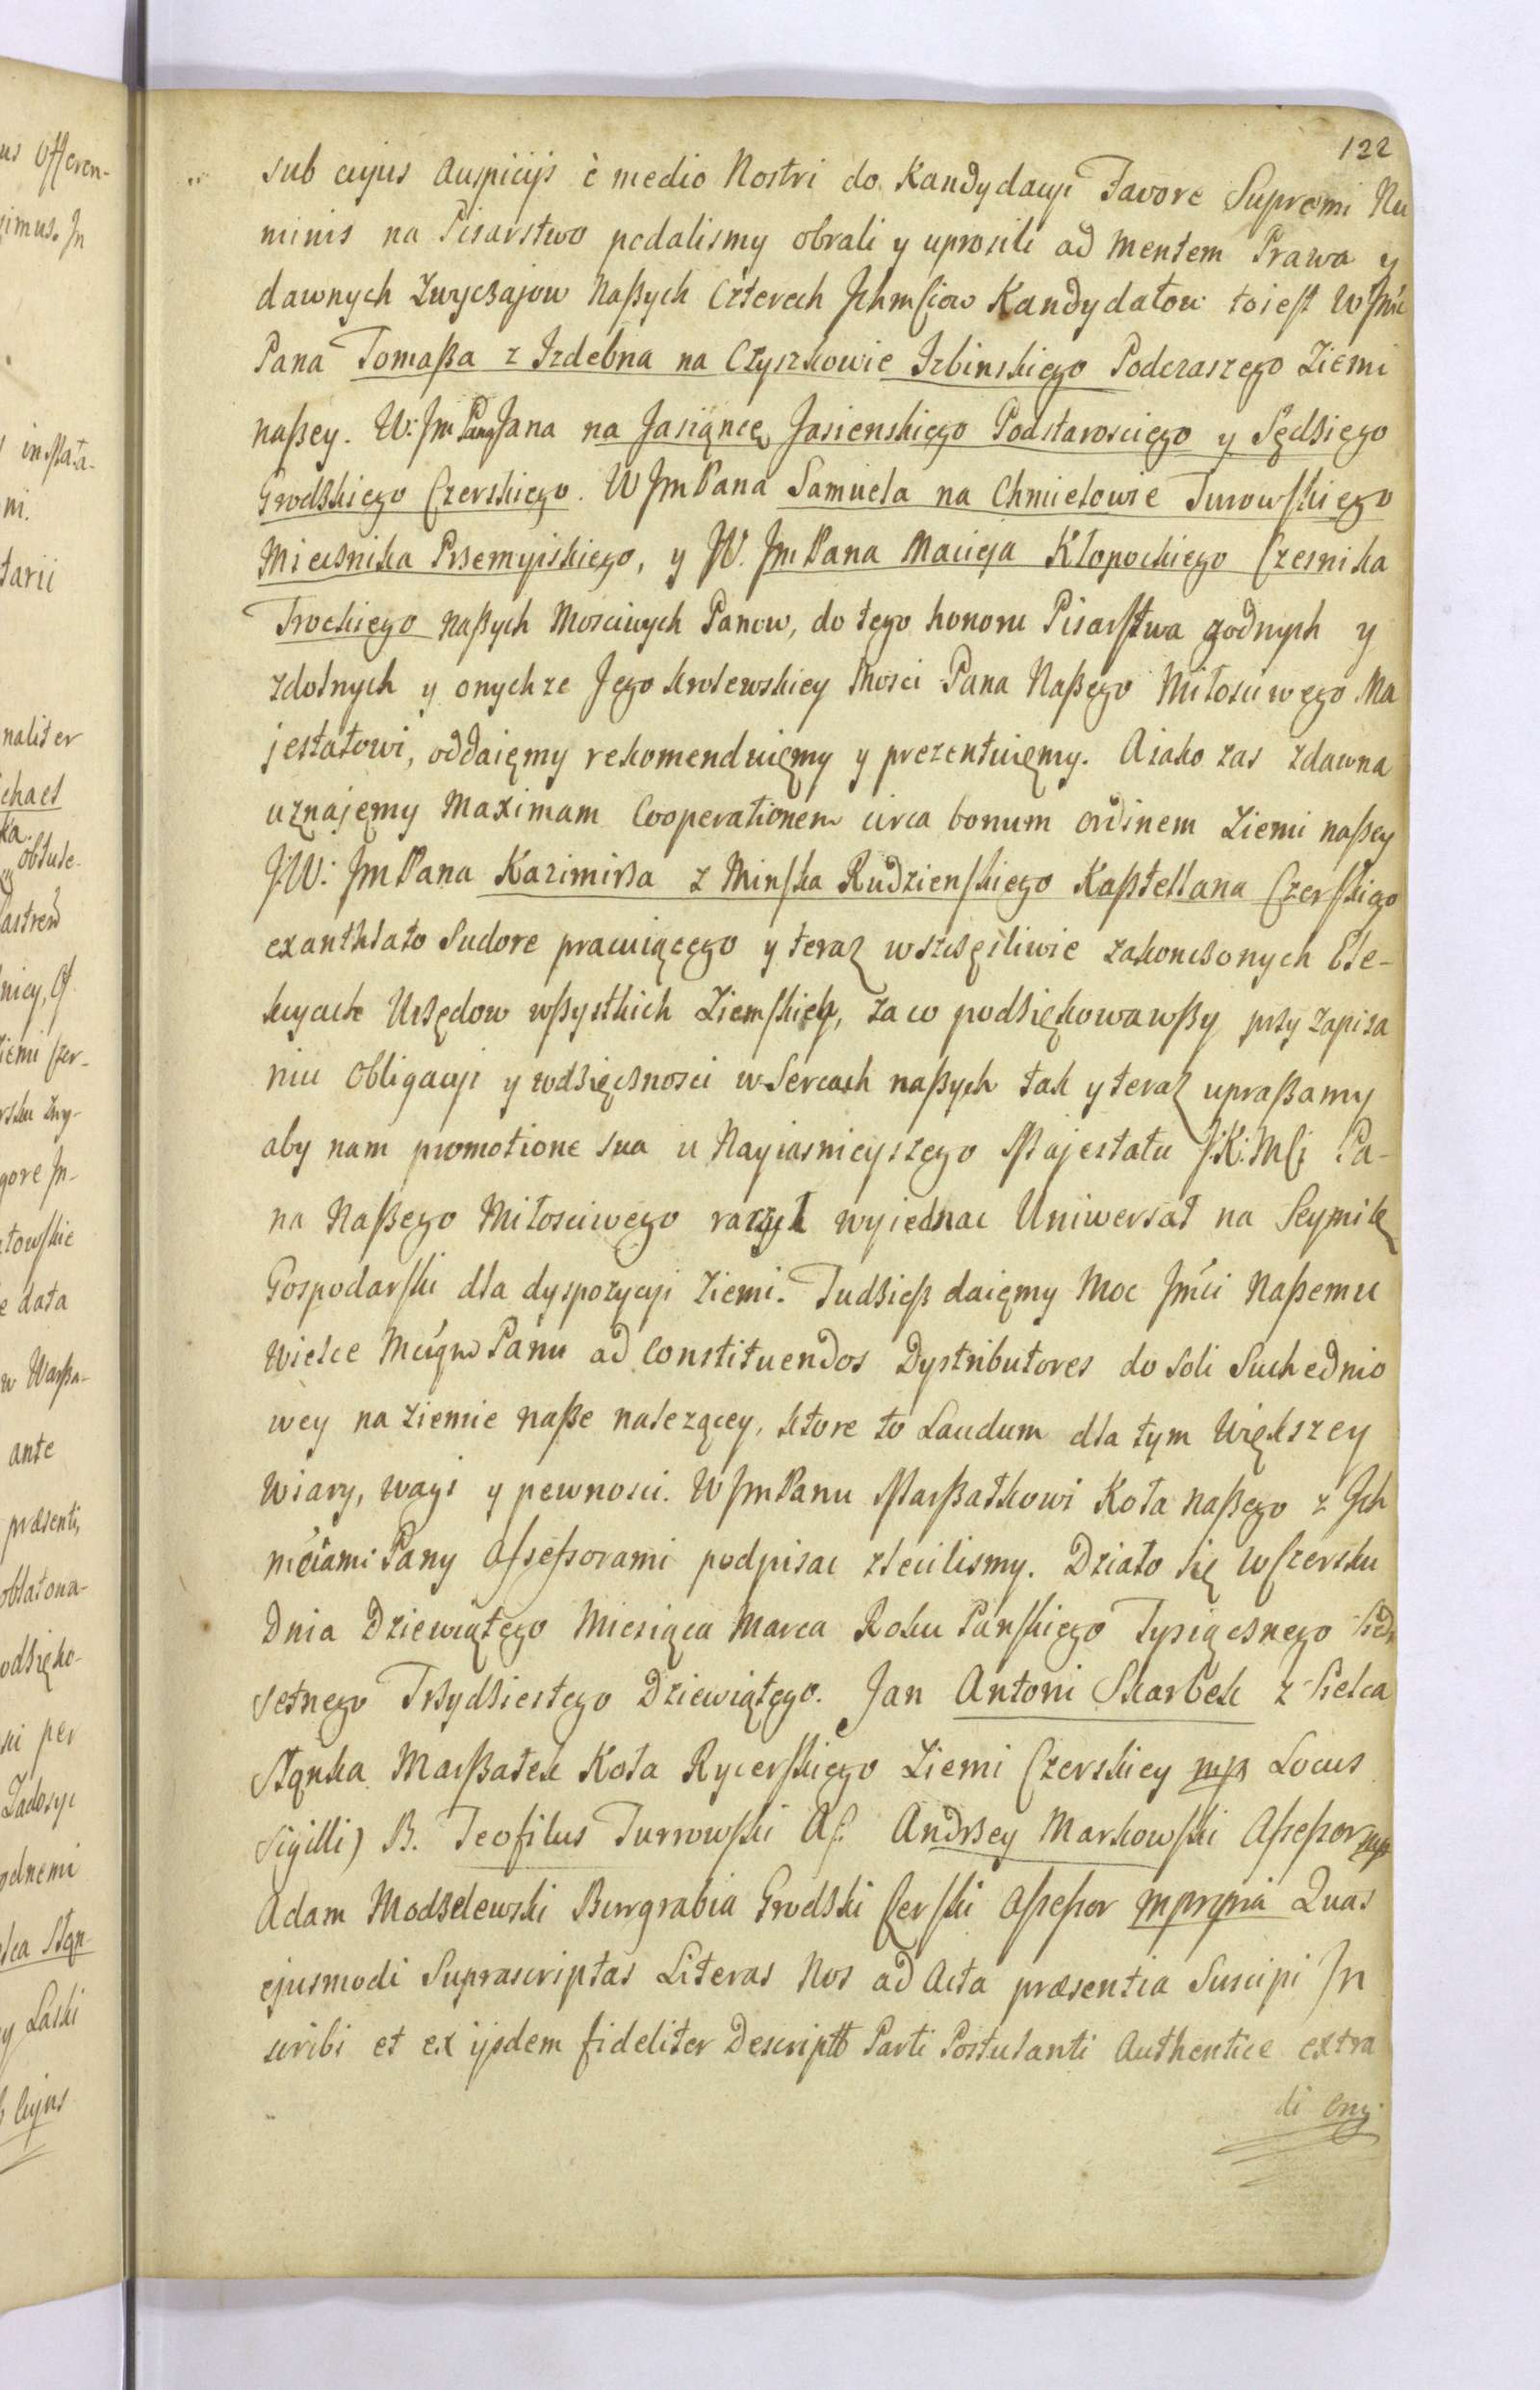 122
sub cujus Auspicijs è medio Nostri do Kandydacyi Favore Supremi Nu
minis na Pisarstwo podalismy obrali y uprosili ad mentem Prawa y
dawnych Zwyczajow Naßych Czterech Jchmsciow Kandydatow toiest WJmc
Pana Tomaßa z Izdebna na Czyszkowie Izbinskiego Podczaszego Ziemi
naßey. W: Jm Pana Jana na Jasiąncę Jasienskiego Podstarosciego y Sędziego
Grodzkiego Czerskiego. W Jm Pana Samuela na Chmielowie Turowskiego
Miecznika Przemyiskiego, y W. Jm Pana Macieja Kłopockiego Czesnika
Trockiego Naßych Mosciwych Panow, do tego honoru Pisarstwa godnych y
zdolnych y onychze Jego Krolewskiey Mosci Pana Naßego Miłosciwego Ma
jestatowi, oddaięmy rekomenduięmy y prezentuięmy. A iako zas zdawna
uznajęmy Maximam Cooperationem circa bonum ordinem Ziemi naßey
J:W: Jm Pana Kazimirza z Minska Rudzienskiego Kasztellana Czerskiego
exanthlato Sudore pracuiącego y teraz wszczęsliwie zakonczonych Ele-
kcyach Urzędow wßystkich Ziemskich, za co podziękowawßy przy zapisa
niu Obligacyi y wdzięcznosci w Sercach naßych tak y teraz upraßamy
aby nam promotione sua u Nayiasnieyszego Majestatu J:K:Mci Pa-
na Naßego Miłosciwego raczył wyiednac Uniwersał na Seymik
Gospodarski dla dyspozycyi Ziemi. Tudzieß daięmy Moc Jmci Naßemu
Wielce Mcigmo Panu ad Constituendos Dystributores do Soli Suchednio
wey na Ziemie naße nalezącey, ktore to Laudum dla tym Większey
Wiary, wagi y pewnosci. W Jm Panu Marßałkowi Koła Naßego z Jch
mciami Pany Assessorami podpisac zlecilismy. Działo się w Czersku
Dnia Dziewiątego Miesiąca Marca Roku Panskiego Tysiącznego Siedm
setnego Trzydziestego Dziewiątego. Jan Antoni Skarbek z Sielca
Stąnka Marßałek Koła Rycerskiego Ziemi Czerskiey mp Locus
Sigilli) B. Teofilus Turrowski As: Andrzey Markowski Aßeßor mp
Adam Modzelewski Burgrabia Grodzki Cerski Aßeßor mpropria Quas
ejusmodi Suprascriptas Literas Nos ad Acta præsentia Suscipi In
scribi et ex ijsdem fideliter Descriptt Parti Postulanti Authentice extra
di